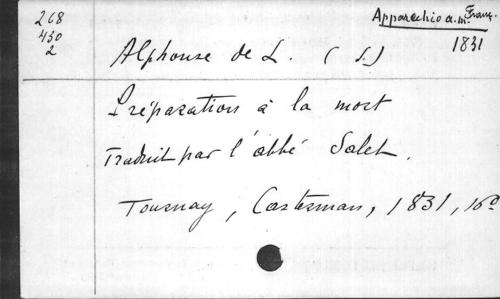 268
430
2
Apparechio a.m. Franç.
1831
Alphonse de L. (S.)
Préparation à la mort
Traduit par l'abbé Salet.
Tournay, Casterman, 1831, 16º